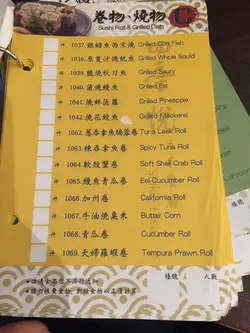 卷物、燒物
Sushi Roll & Grilled Dish
件 1037.銀鱈魚西京燒 Grilled Cod Fish
件 1038.原隻汁燒魷魚 Grilled Whole Squid
件 1039.鹽燒秋刀魚 Grilled Saury
件 1040.蒲燒鰻魚 Grilled Eel
件 1041.燒鮮菠蘿 Grilled Pineapple
件 1042.燒花鮫魚 Grilled Mackerel
件 1062.葱吞拿魚腩蓉卷 Tuna Leek Roll
件 1063.辣吞拿魚卷 Spicy Tuna Roll
件 1064.軟殼蟹卷 Soft Shell Crab Roll
件 1065.鰻魚青瓜卷 Eel Cucumber Roll
件 1066.加州卷 California Roll
件 1067.牛油燒粟米 Butter Corn
件 1068.青瓜卷 Cucumber Roll
件 1069.天婦羅蝦卷 Tempura Prawn Roll
檯號 人數